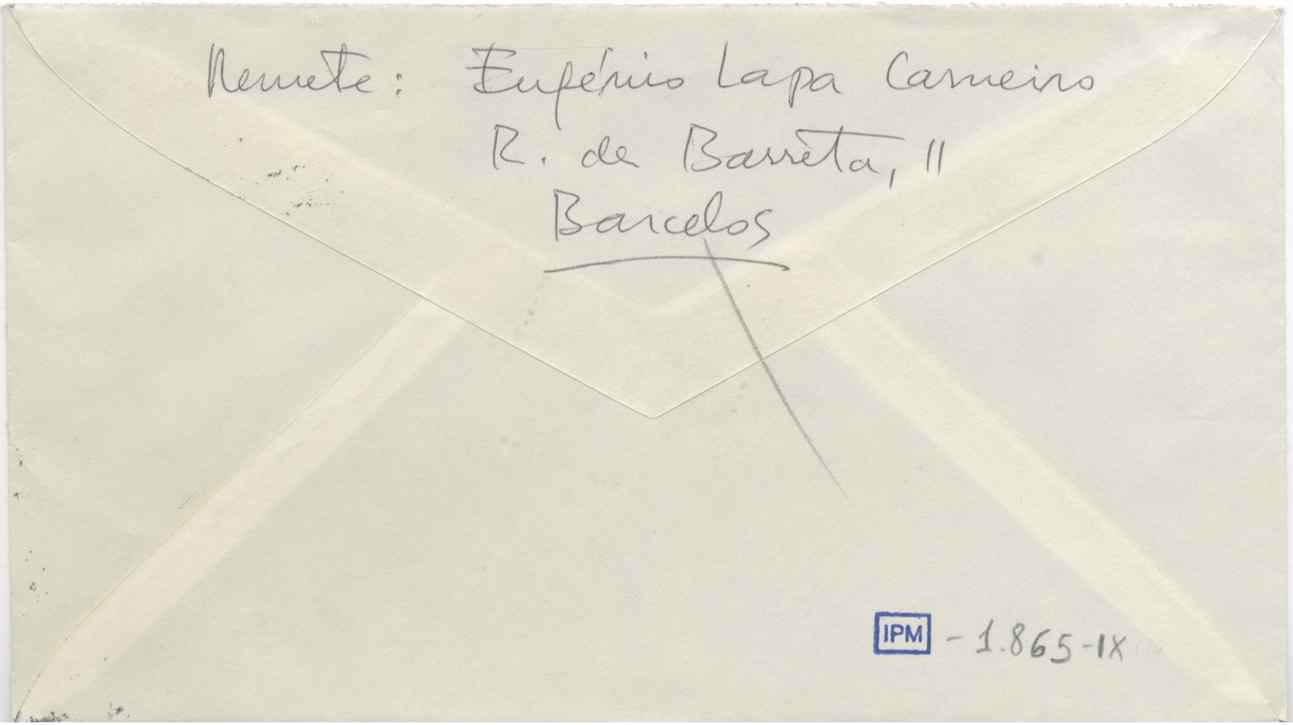 Remete: Eugénio Lapa Carneiro
R. da Barreta, 11
Barcelos
IPM - 1.865-IX